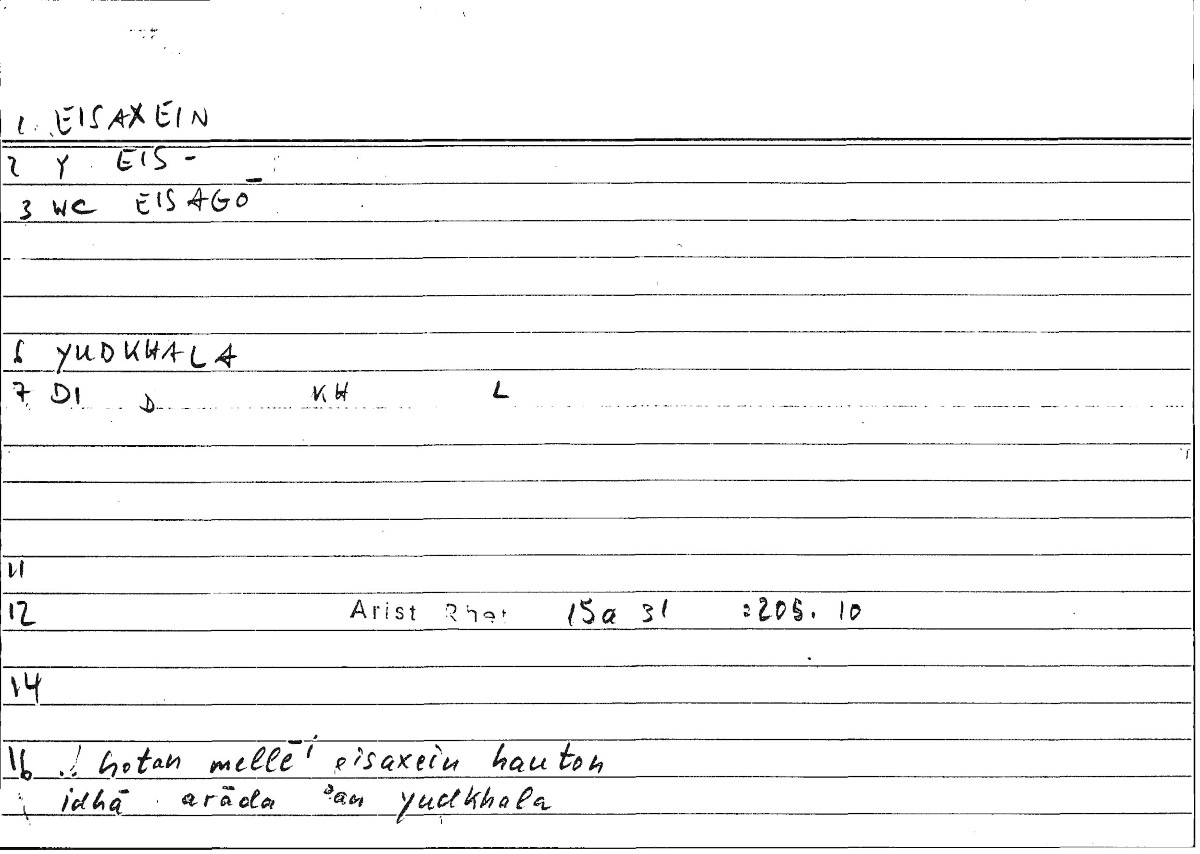 1. EISAXEIN
2 Y EIS-
3 WC EISAGŌ
6 YUDKHALA
7 DI D KH L
11
12 Arist Rhet 15a 31 :205. 10
14
16 hotan mellēi eisaxein hauton
idhā arāda ʾan yudkhala